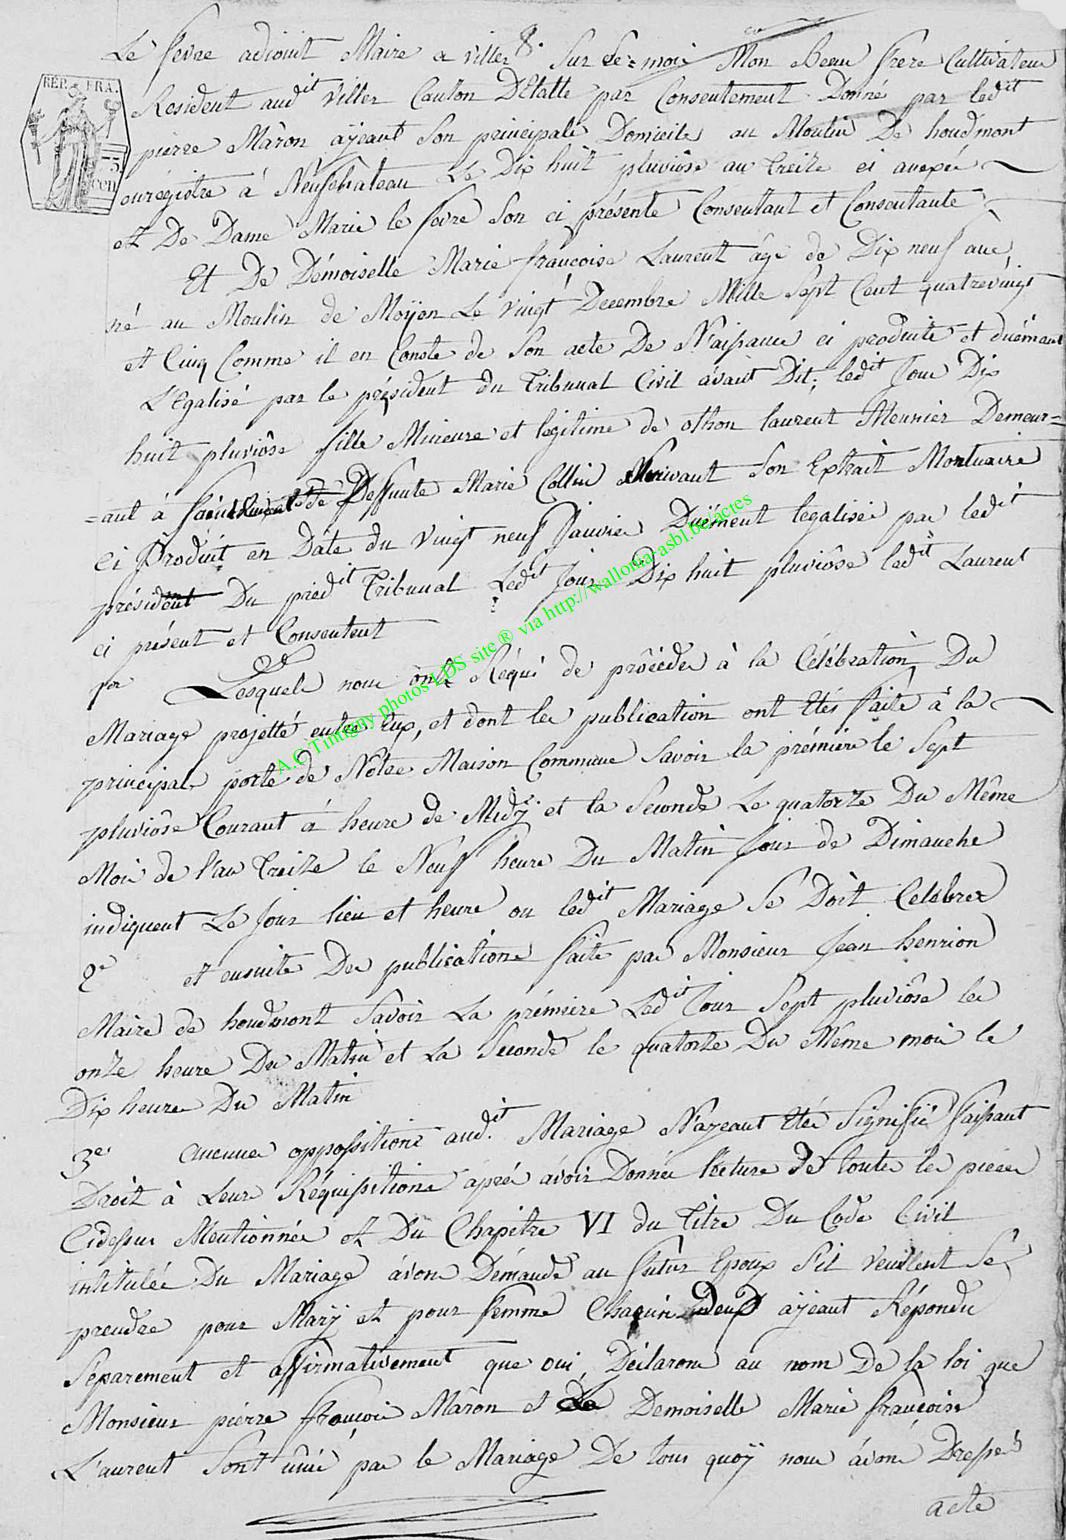 Le fevre adjoint Maire a viller 8. Sur Se-moi Mon Beau frere Cultivateur
Resident audit Viller Canton DEtalle par Consentement Donné par ledit
REP. FRA.
75 cen
pierre Maron aÿeant Son principale Domicile au Moulin De houdmont
enrégistre á Neufchateau Le Dix huit pluviôse an Treize ci anexée
et De Dame Marie le fevre Son ci présente Consentant et Consentante
Et De Démoiselle Marie françoise Laurent âge de Dix neuf ans,
né au Moulin de Moÿen Le vingt Decembre Mille Sept Cent quatrevingt
et Cinq Comme il en Conste de Son acte De Naissance ci produite et duëment
L'Egalisé par le président du Tribunal Civil avant Dit, ledit Jour Dix
huit pluviôse fille Mineure et legitime de othon laurent Meunier Demeur=
=ant à et de Deffunte Marie Collin Suivant Son Extrait Mortuaire
ci Produit en Dáte du vingt neuf Janvier Duëment legalisé par ledit
président Du prédit Tribunal Ledit Jour Dix huit pluviôse ledit Laurent
ci présent et Consentent
Lesquels nous ont Réqui de procéder à la Célébration Du
Mariage projetté entre Eux, et dont les publication ont Etés faite à la
principale porte de Nôtre Maison Commune Savoir la prémière le Sept
pluviôse Courant á heure de Midÿ et la Seconde Le quatorze Du Même
Moi de l'an Treize le Neuf heure Du Matin Jour de Dimanche
indiquent Le Jour lieu et heure ou ledit Mariage Se Doit Celebrer
2e et ensuite Des publications faite par Monsieur Jean henrion
Maire de houdmont Savoir La prémiere Ledit Jour Sept pluviôse les
onze heure Du Matin et La Seconde le quatorze Du Même moi le
Dix heure Du Matin
3e Aucune oppositions audit Mariage N'ayeant Etée Signifié faisant
Droit à Leur Réquisitions áprés ávoir Donnée lécture de toute les pieces
Cidessus Mentionnée et Du Chapitre VI du Titre Du Code Civil
intitulée Du Mariage ávons Démandé au futur Epoux S'il veuillent Se
prendre pour Marÿ et pour femme Chaqu'un deux aÿeant Répondu
Séparement et affirmativement que oui Déclarons au nom De la loi que
Monsieur pierre françois Maron et La Demoiselle Marie françoise
Laurent Sont unis par le Mariage De tous quoÿ nous ávons Dressé
acte
A.G Tintigny photos LDS site ® via http://wallonia-asbl.be/actes